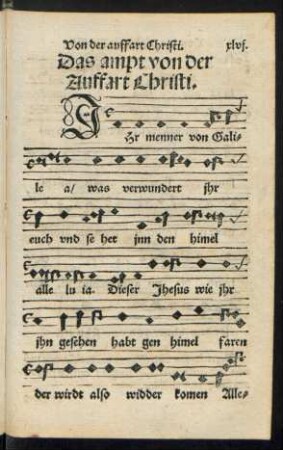 Von der auffart Christi. xlvj.
Das ampt von der
Auffart Christi.
IHr menner von Gali-
le a/ was verwundert jhr
euch vnd se het jnn den himel
alle lu ia. Dieser Jhesus wie jhr
jhn gesehen habt gen himel faren
der wirdt also widder komen Alle-